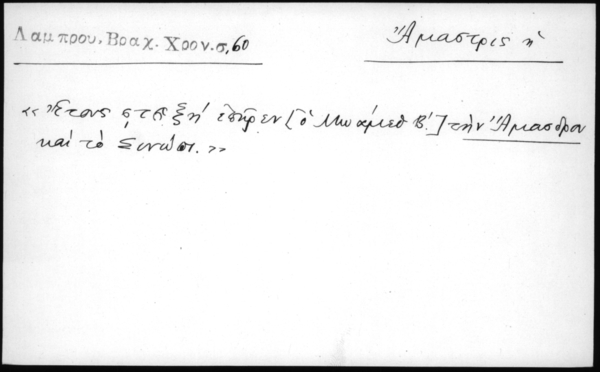 Λαμπρου. Βραχ. Χρον. σ. 60
Ἄμαστρις ἡ
« Ἔτους ϛτϡξη΄ ἐπῆρεν [ὁ Μωάμεθ Β΄.] τὴν Ἄμασδρον
καὶ τὸ Σινώπι. »